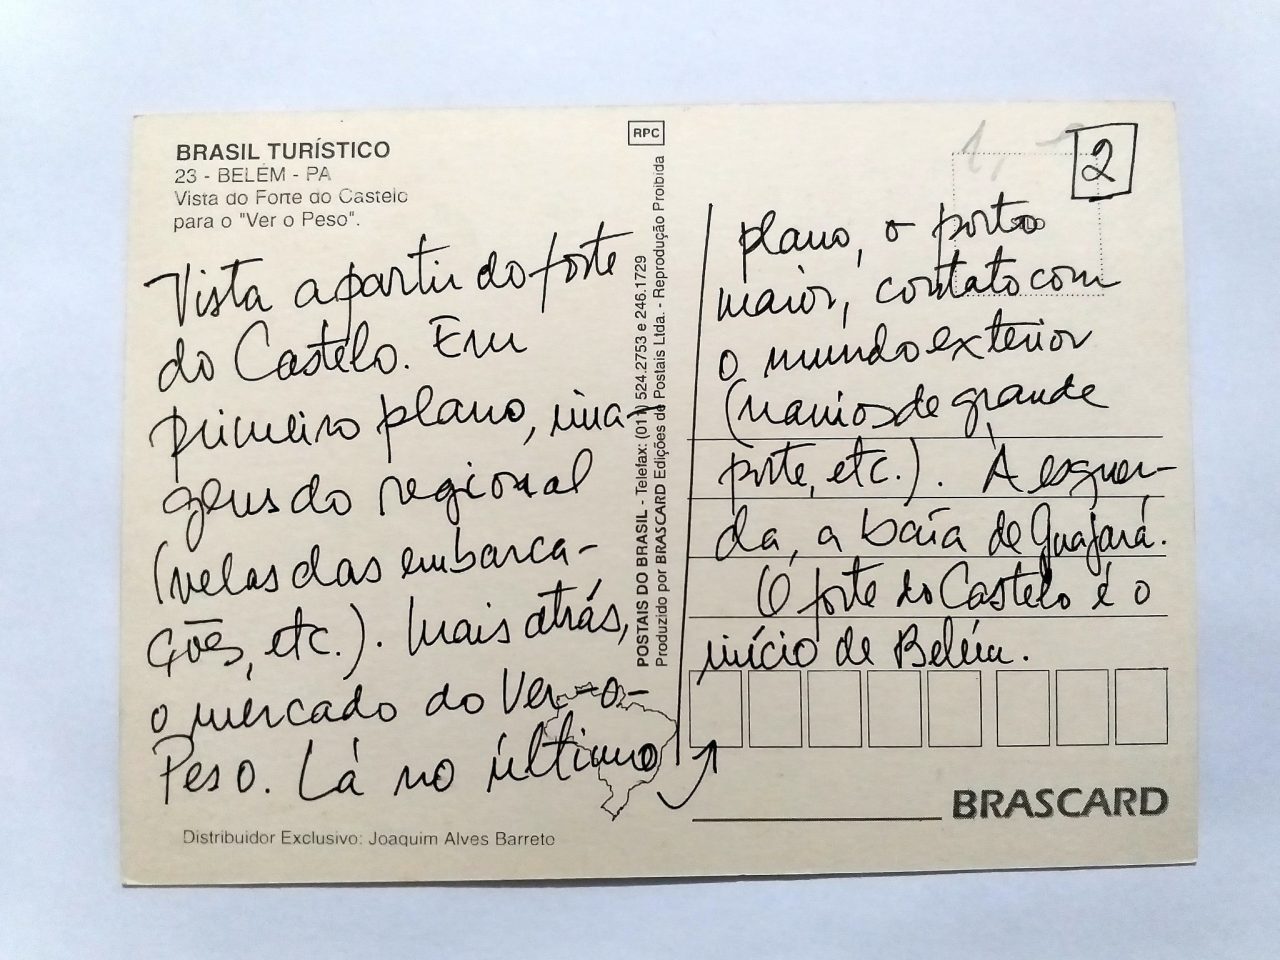 BRASIL TURÍSTICO
23 - BELÉM - PA
Vista do Forte do Castelo
para o "Ver o Peso".
Vista a partir do forte
do Castelo. Em
primeiro plano, ima-
gens do regional
(velas das embarca-
ções, etc.). Mais atrás,
o mercado do Ver-o-
Peso. Lá no último
Distribuidor Exclusivo: Joaquim Alves Barreto
RPC
POSTAIS DO BRASIL - Telefax: (011) 524.2753 e 246.1729
Produzido por BRASCARD Edições de Postais Ltda. - Reprodução Proibida
2
plano, o porto
maior, contato com
o mundo exterior
(navios de grande
porte, etc.). À esquer-
da, a baía de Guajará.
O forte do Castelo é o
início de Belém.
BRASCARD